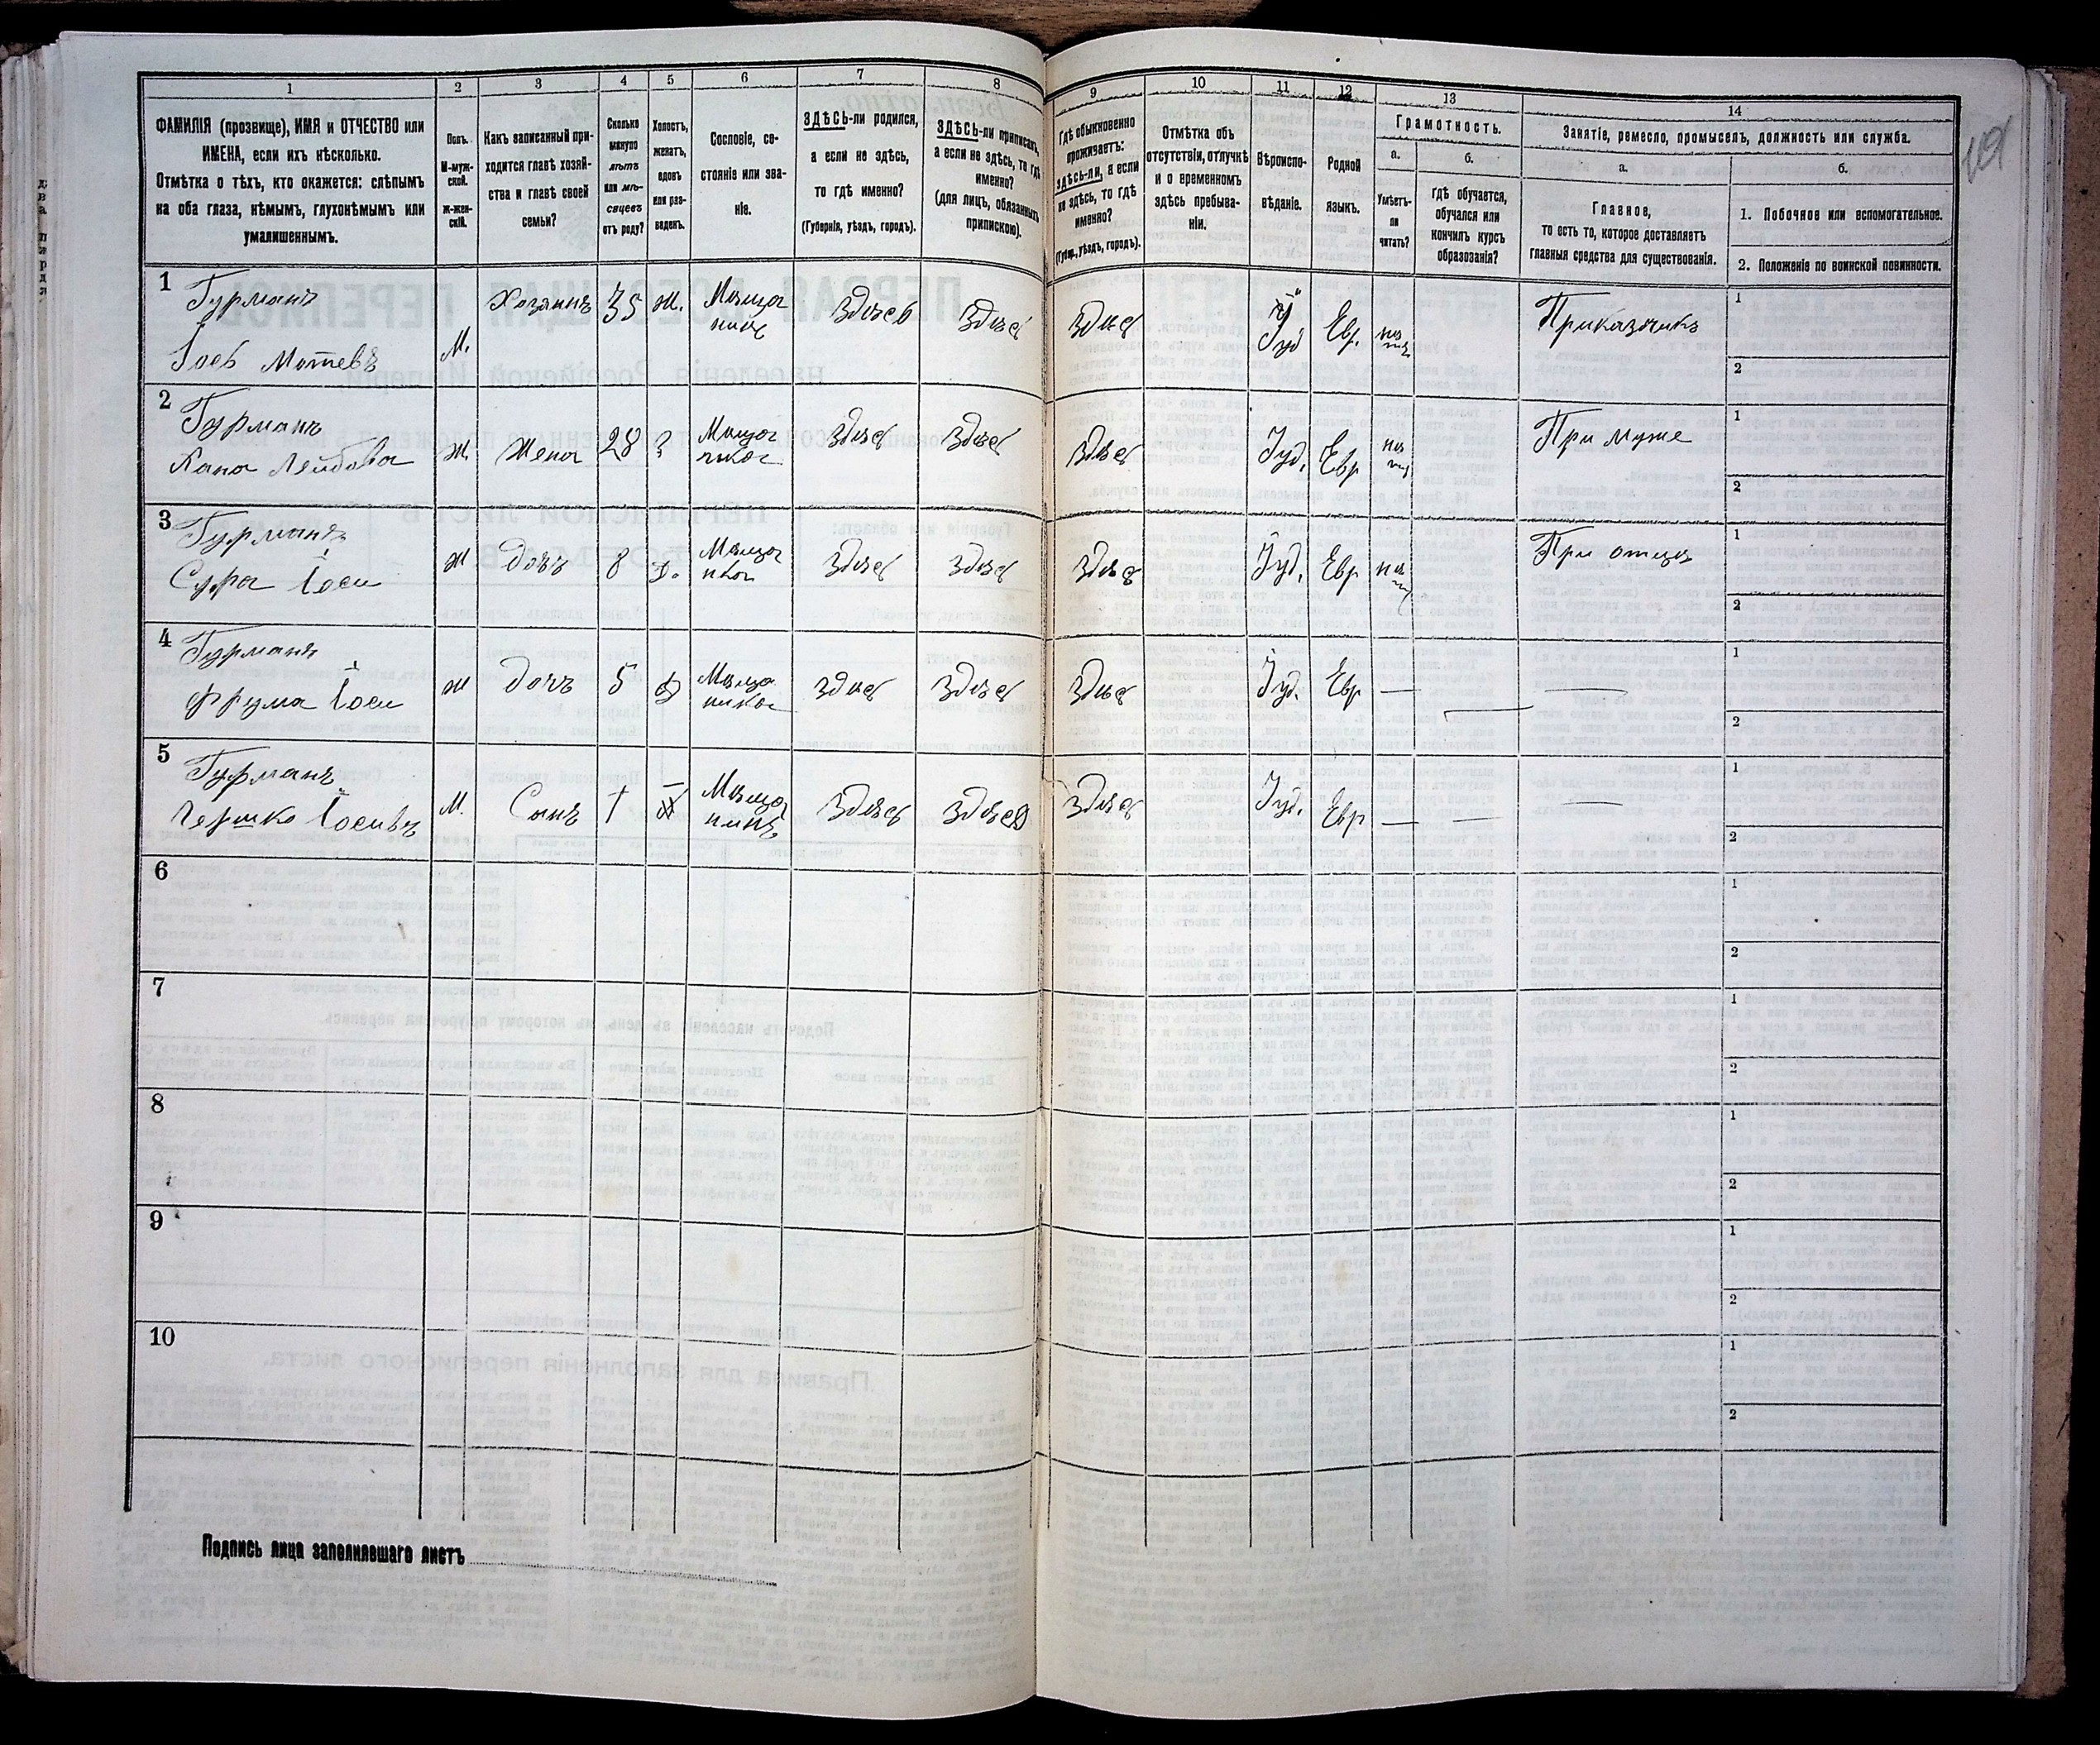 1 2 3 4 5 6 7 8 9 10 11 12 13 14
ФАМИЛІЯ (прозвище), ИМЯ и ОТЧЕСТВО или
ИМЕНА, если ихъ нѣсколько.
Отмѣтка о тѣхъ, кто окажется: слѣпымъ
на оба глаза, нѣмымъ, глухонѣмымъ или
умалишеннымъ.
Полъ.
М-муж-
ской.
Ж-жен-
скій.
Какъ записанный при-
ходится главѣ хозяй-
ства и главѣ своей
семьи?
Сколько
минуло
лѣтъ
или мѣ-
сяцевъ
отъ роду?
Холостъ,
женатъ,
вдовъ
или раз-
веденъ.
Сословіе, со-
стояніе или зва-
ніе.
ЗДѢСЬ-ли родился,
а если не здѣсь,
то гдѣ именно?
(Губернія, уѣздъ, городъ).
ЗДѢСЬ-ли приписанъ,
а если не здѣсь, то гдѣ
именно?
(для лицъ, обязанныхъ
припискою).
Гдѣ обыкновенно
проживаетъ:
здѣсь-ли, а если
не здѣсь, то гдѣ
именно?
(Губер., уѣздъ, городъ).
Отмѣтка объ
отсутствіи, отлучкѣ
и о временномъ
здѣсь пребыва-
ніи.
Вѣроиспо-
вѣданіе.
Родной
языкъ.
Грамотность.
а.
Умѣетъ-
ли
читать?
б.
гдѣ обучается,
обучался или
кончилъ курсъ
образованія?
Занятіе, ремесло, промыселъ, должность или служба.
а.
Главное,
то есть то, которое доставляетъ
главныя средства для существованія.
б.
1. Побочное или вспомогательное.
2. Положеніе по воинской повинности.
1 Гурманъ
Іось Мотевъ М. Хозяинъ 35 ж. Мѣща
нинъ Здѣсь Здѣсь Здѣсь Іуд Евр. Приказчикъ 1
2
2 Гурманъ
Хана Лейбова Ж. Жена 28 Мѣща
нка Здѣсь Здѣсь Здѣсь Іуд. Евр При мужѣ 1
2
3 Гурманъ
Сура Іоси Ж Дочь 8 Д. Мѣща
нка Здѣсь Здѣсь Здѣсь Іуд. Евр При отцѣ 1
2
4 Гурманъ
Фрума Іоси Ж Дочь 5 Мѣща
нка Здѣсь Здѣсь Здѣсь Іуд. Евр — — — 1
2
5 Гурманъ
Гершко Іосивъ М. Сынъ Мѣща
нинъ Здѣсь Здѣсь Здѣсь Іуд. Евр — — — 1
2
6 1
2
7 1
2
8 1
2
9 1
2
10 1
2
Подпись лица заполнявшаго листъ